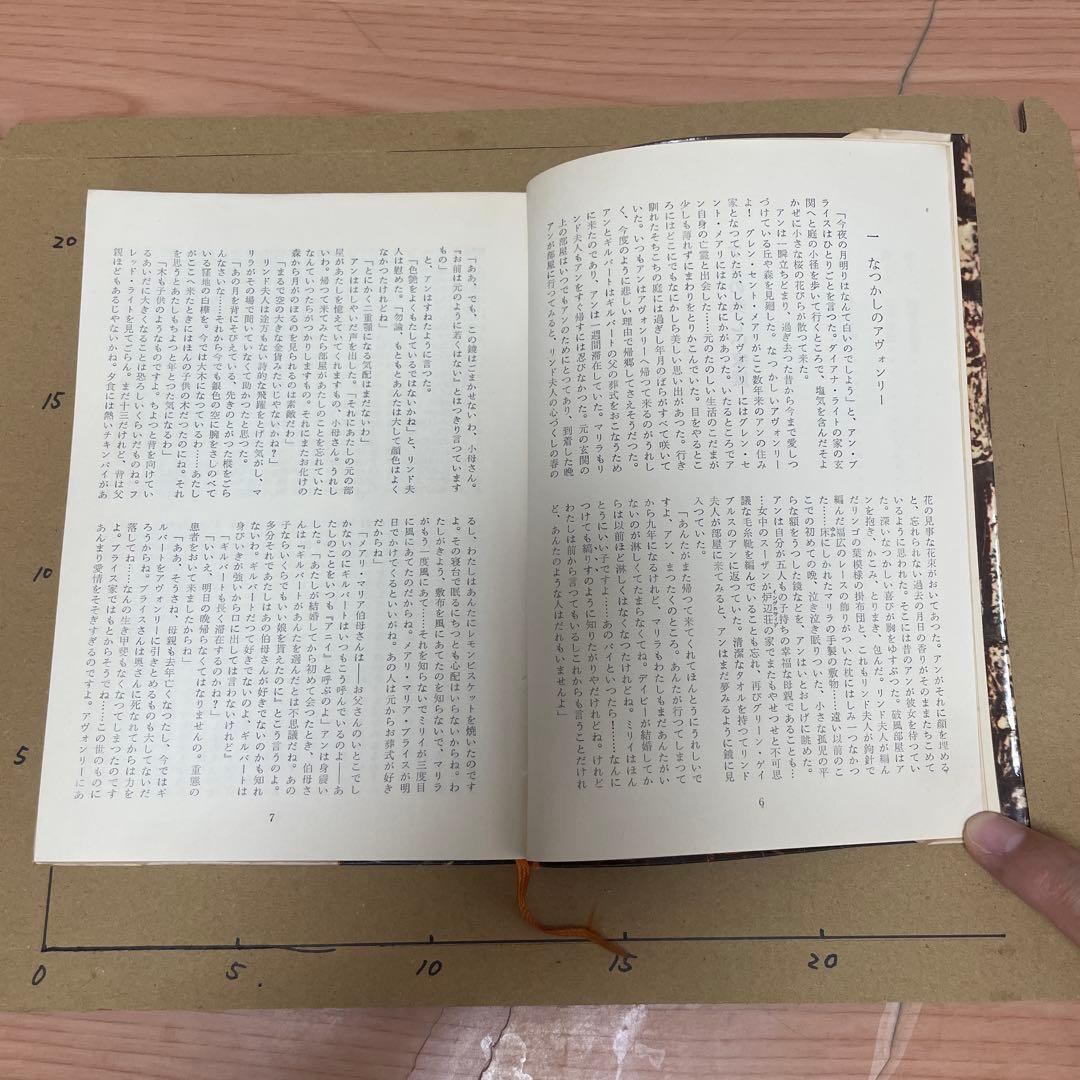 一 なつかしのアヴォンリー
「今夜の月明りはなんて白いのでしょう」と、アン・ブ
ライスはひとりごとを言った。ダイアナ・ライトの家の玄
関へと庭の小径を歩いて行くところで、塩気を含んだそよ
かぜに小さな桜の花びらが散って来た。
アンは一瞬立ちどまり、過ぎ去った昔から今まで愛しつ
づけている丘や森を見廻した。なつかしいアヴォンリー
よ！ グレン・セント・メアリがここ数年来のアンの住み
家となっていたが、しかし、アヴォンリーにはグレン・セ
ント・メアリにはないなにかがあった。いたるところでア
ン自身の亡霊と出会した……元のたのしい生活のこだまが
少しも薄れずにまわりをとりかこんでいた。目をやるとこ
ろにはどこにでもなにかしら美しい思い出があった。行き
馴れたそちこちの庭には過ぎし年月のばらがすべて咲いて
いた。いつもアンはアヴォンリーへ帰って来るのがうれし
く、今度のように悲しい理由で帰郷してさえそうだった。
アンとギルバートはギルバートの父の葬式をおこなうため
に来たのであり、アンは一週間滞在していた。マリラもリ
ンド夫人もアンをすぐ帰すには忍びなかった。元の玄関の
上の部屋はいつでもアンのためにとってあり、到着した晩
アンが部屋に行ってみると、リンド夫人の心づくしの春の
花の見事な花束がおいてあった。アンがそれに顔を埋める
と、忘れられない過去の月日の香りがそのままたちこめて
いるように思われた。そこには昔のアンが彼女を待ってい
た。深いなつかしい喜びが胸をゆすぶった。破風部屋はア
ンを抱き、かこみ、とりまき、包んだ。リンド夫人が編ん
だリンゴの葉模様の掛布団と、これもリンド夫人が鉤針で
編んだ幅広のレースの飾りがついた枕にはしみ一つなかっ
た……床にしかれたマリラの手製の敷物……遠い以前のこ
とここでの初めての晩、泣き泣き眠りついた、小さな孤児の平
らな額をうつした鏡などを、アンはいとおしげに眺めた。
アンは自分が五人の子持ちの幸福な母親であることも…
…女中のスーザンが炉辺荘の家でまたもやせっせと不可思
議な毛糸靴を編んでいることも忘れ、再びグリーン・ゲイ
ブルスのアンに返っていた。清潔なタオルを持ってリンド
夫人が部屋に来てみると、アンはまだ夢みるように鏡に見
入っていた。
「あんたがまた帰って来てくれてほんとうにうれしいで
すよ、アン、まったくのところ。あんたが行ってしまって
から九年になるけれど、マリラもわたしもまだあんたがい
ないのが淋しくてたまらなくてね。デイビーが結婚してか
らは以前ほど淋しくはなくなったけれどね。ミリイはほん
とうにいい子ですよ……あのパイといったら！……なんに
つけても縞りすのように知りたがりやだけれどね。けれど
わたしは前から言ってもいるしこれからも言うことだけれ
ど、あんたのような人はだれもいませんよ」
6
「ああ、でも、この鏡はごまかせないわ、小母さん。
『お前は元のように若くはない』とはっきり言っています
もの」
と、アンはすねたように言った。
「色艶をよくたもっているではないかね」と、リンド夫
人は慰めた。「勿論、もともとあんたは大して顔色はよく
なかったけれどね」
「とにかく二重顎になる気配はまだないわ」
アンははしゃいだ声を出した。「それにあたしの元の部
屋があたしを憶えていてくれますもの、小母さん。うれし
いわ。帰って来てみたら部屋があたしのことを忘れていた
なんていったらがっかりしますもの。それにまたお化けの
森から月がのぼるのを見られるのは素敵だわ」
「まるで空の大きな金貨みたいじゃないかね？」
リンド夫人は途方もない詩的な飛躍をとげた気がし、マ
リラがその場で聞いていなくて助かったと思った。
「あの月を背にそびえている、先きのとがった樅をごら
んなさいな……それから今でも銀色の空に腕をさしのべて
いる窪地の白樺を。今では大木になっているわ……あたし
がここへ来たときにはほんの子供の木だったのにね。それ
を思うとあたしもちょっと年とった気になるわ」
「木も子供のようなものですよ。ちょっと背を向けてい
るあいだに大きくなることは恐ろしいくらいだものね。フ
レッド・ライトを見てごらん。まだ十三だけれど、背は父
親ほどもあるじゃないかね。夕食には熱いチキンパイがあ
るし、わたしはあんたにレモンビスケットを焼いたのです
よ。その寝台で眠るにちっとも心配はいらないからね。わ
たしがきょう、敷布を風にあてたのを知らないで、マリラ
がもう一度風にあて……それを知らないでミリイが三度目
に風にあてたのだからね。メアリ・マリア・ブライスが明
日出かけてくるといいがね。あの人は元からお葬式が好き
だからね」
「メアリ・マリア伯母さんは――お父さんのいとこでし
かないのにギルバートはいつもこう呼んでいるのよ――あ
たしのことをいつも『アニイ』と呼ぶのよ」アンは身震い
した。「あたしが結婚してから初めて会ったとき、伯母さ
んは『ギルバートがあんたを選んだとは不思議だね。あの
子ならいくらでもいい娘を貰えたのに』とこう言うのよ。
多分それであたしはあの伯母さんが好きでないのかも知れ
ないわ。ギルバートだって好きでないのよ、ギルバートは
身びいきが強いから口に出しては言わないけれど」
「ギルバートも長く滞在するのかね？」
「いいえ、明日の晩帰らなくてはなりませんの。重態の
患者をおいて来ましたからね」
「ああ、そうさね、母親も去年亡くなったし、今ではギ
ルバートをアヴォンリーに引きとめるものも大してないだ
ろうからね。ブライスさんは奥さんに死なれてからは力を
落してね……なんの生き甲斐もなくなってしまったのです
よ。ブライス家ではもとからそうでね……この世のものに
あんまり愛情をそそぎすぎるのですよ。アヴォンリーにあ
7
20
15
10
5
0
5.
10
15
20